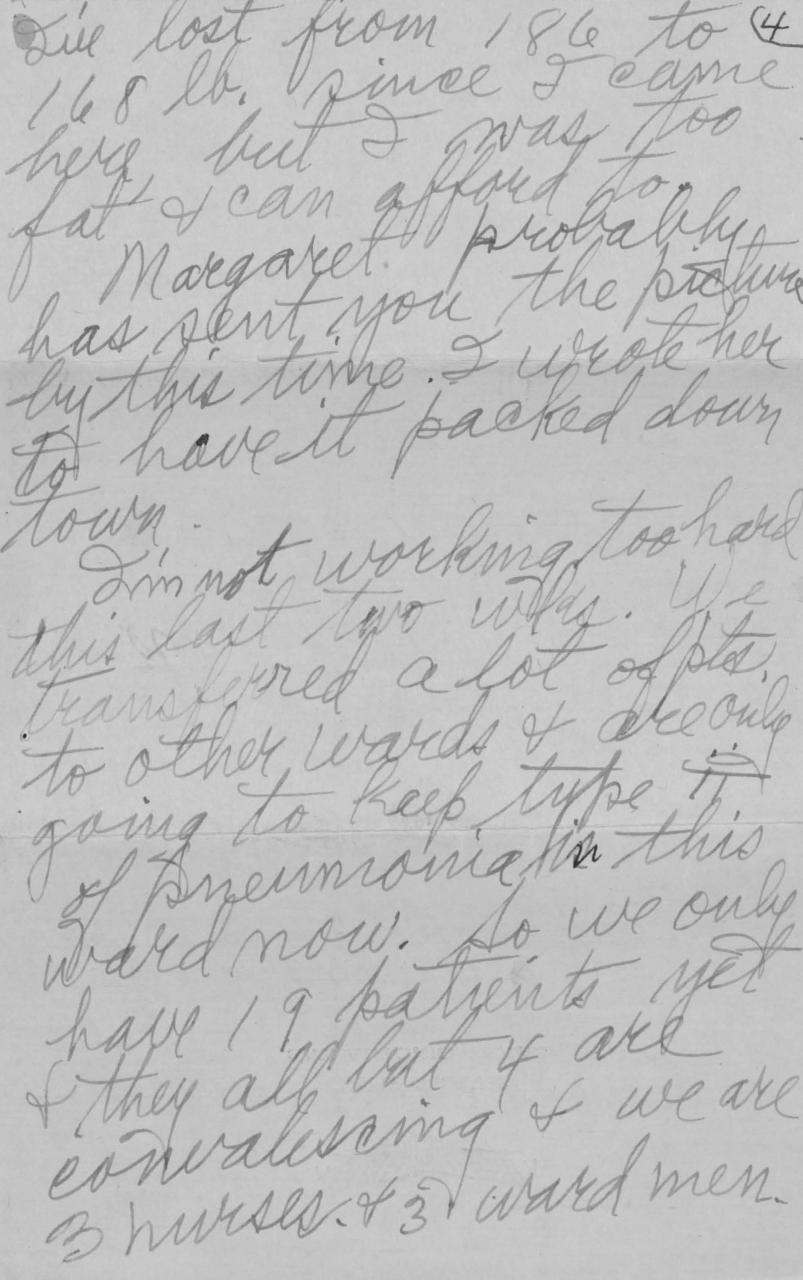 I've lost from 186 to (4
168 lb. since I came
here, but I was too
fat & can afford to.
Margaret probably
has sent you the picture
by this time. I wrote her
to have it packed down
town.
I'm not working too hard
this last two wks. We
transferred a lot of pts.
to other wards & are only
going to keep type II
of pneumonia in this
ward now. So we only
have 19 patients yet
& they all but 4 are
convalescing & we are
3 nurses. & 3 ward men.